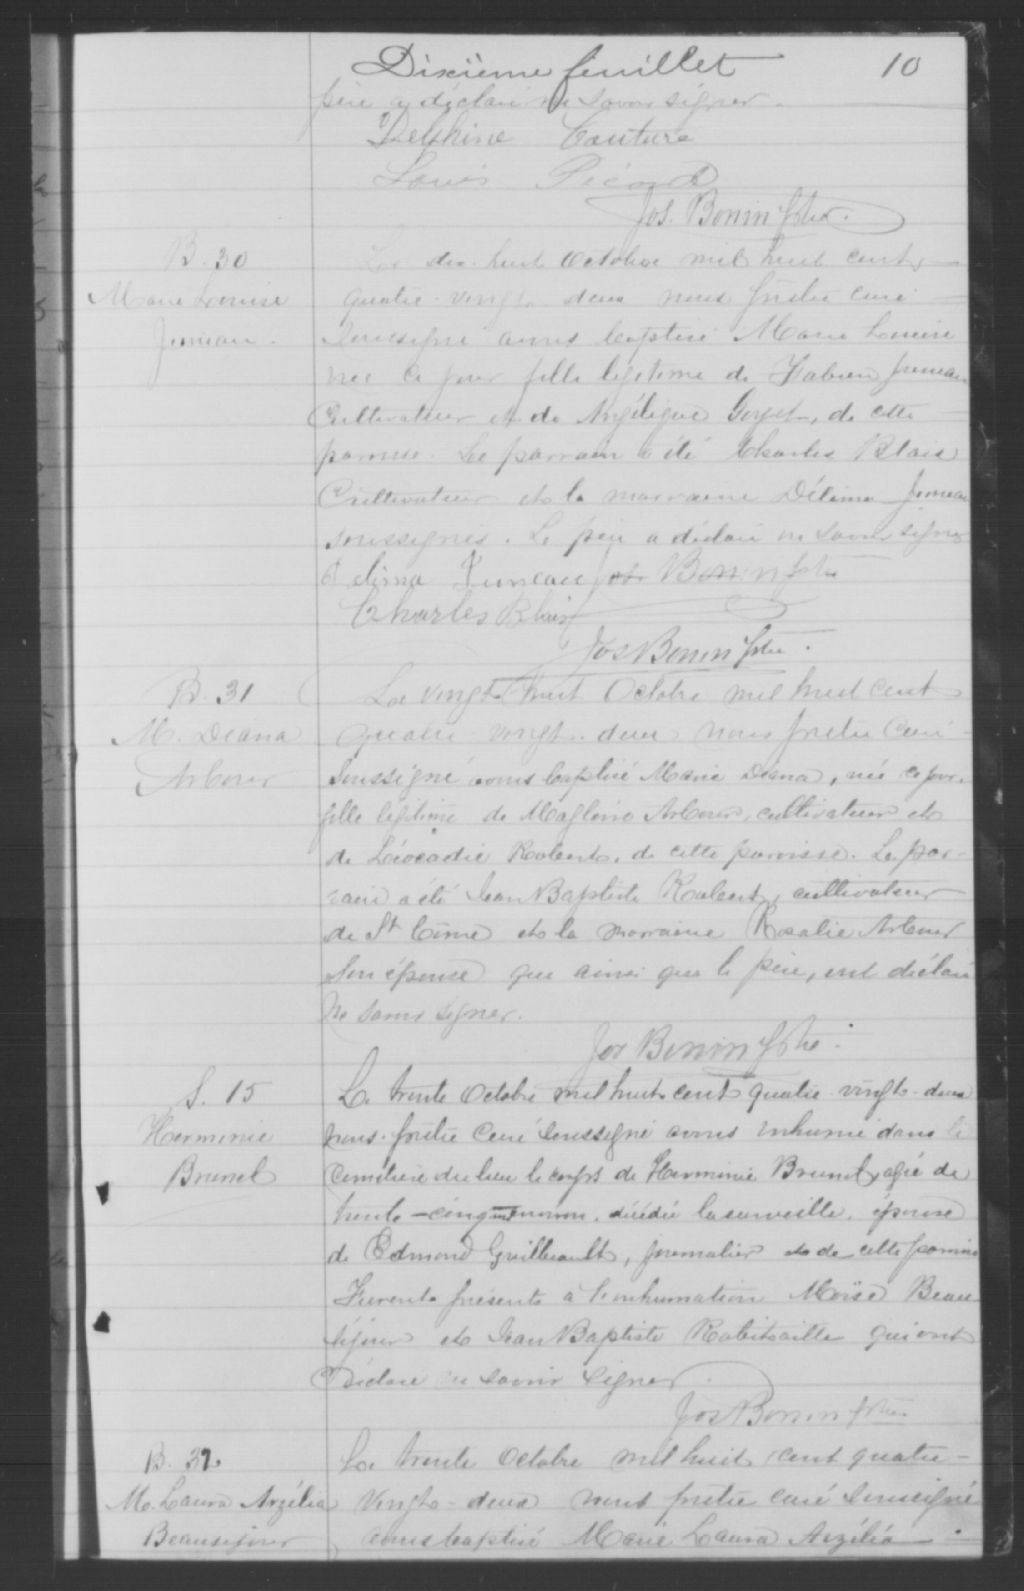 Dixième feuillet 10
père a déclaré ne savoir signer.
Delphine Couture
Louis Picard
Jos. Bonin Ptre.
B. 30
Marie Louise
Juneau.
Le dix-huit Octobre mil huit cent
quatre-vingt-deux nous prêtre curé
soussigné avons baptisé Marie Louise
née ce jour fille légitime de Fabien Juneau
Cultivateur et de Angélique Goyet, de cette
paroisse. Le parrain a été Charles Blais
Cultivateur et la marraine Délima Juneau
soussignés. Le père a déclaré ne savoir signer
Delima Juneau Jos Bonin Ptre
Charles Blais
Jos Bonin Ptre.
B. 31
M. Diana
Arbour
Le vingt-huit Octobre mil huit cent
quatre-vingt-deux nous prêtre curé
soussigné avons baptisé Marie Diana, née ce jour,
fille légitime de Magloire Arbour, cultivateur et
de Léocadie Robert, de cette paroisse. Le par-
rain a été Jean Baptiste Robert, cultivateur
de St Côme et la marraine Rosalie Arbour
son épouse qui ainsi que le père, ont déclaré
ne savoir signer.
Jos Bonin Ptre.
S. 15
Herminie
Brunet
Le trente Octobre mil huit cent quatre-vingt-deux
nous prêtre curé soussigné avons inhumé dans le
cimetière du lieu le corps de Herminie Brunet, agée de
trente-cinq décédée la surveille, épouse
de Edmond Guilbeault, journalier et de cette paroisse
Furent présents à l'inhumation Moïse Beau-
séjour et Jean Baptiste Robitaille qui ont
Déclaré ne savoir signer.
Jos Bonin Ptre
B. 32
M. Laura Arzélia
Beauséjour
Le trente Octobre mil huit cent quatre-
vingt-deux nous prêtre curé soussigné
avons baptisé Marie Laura Arzélia